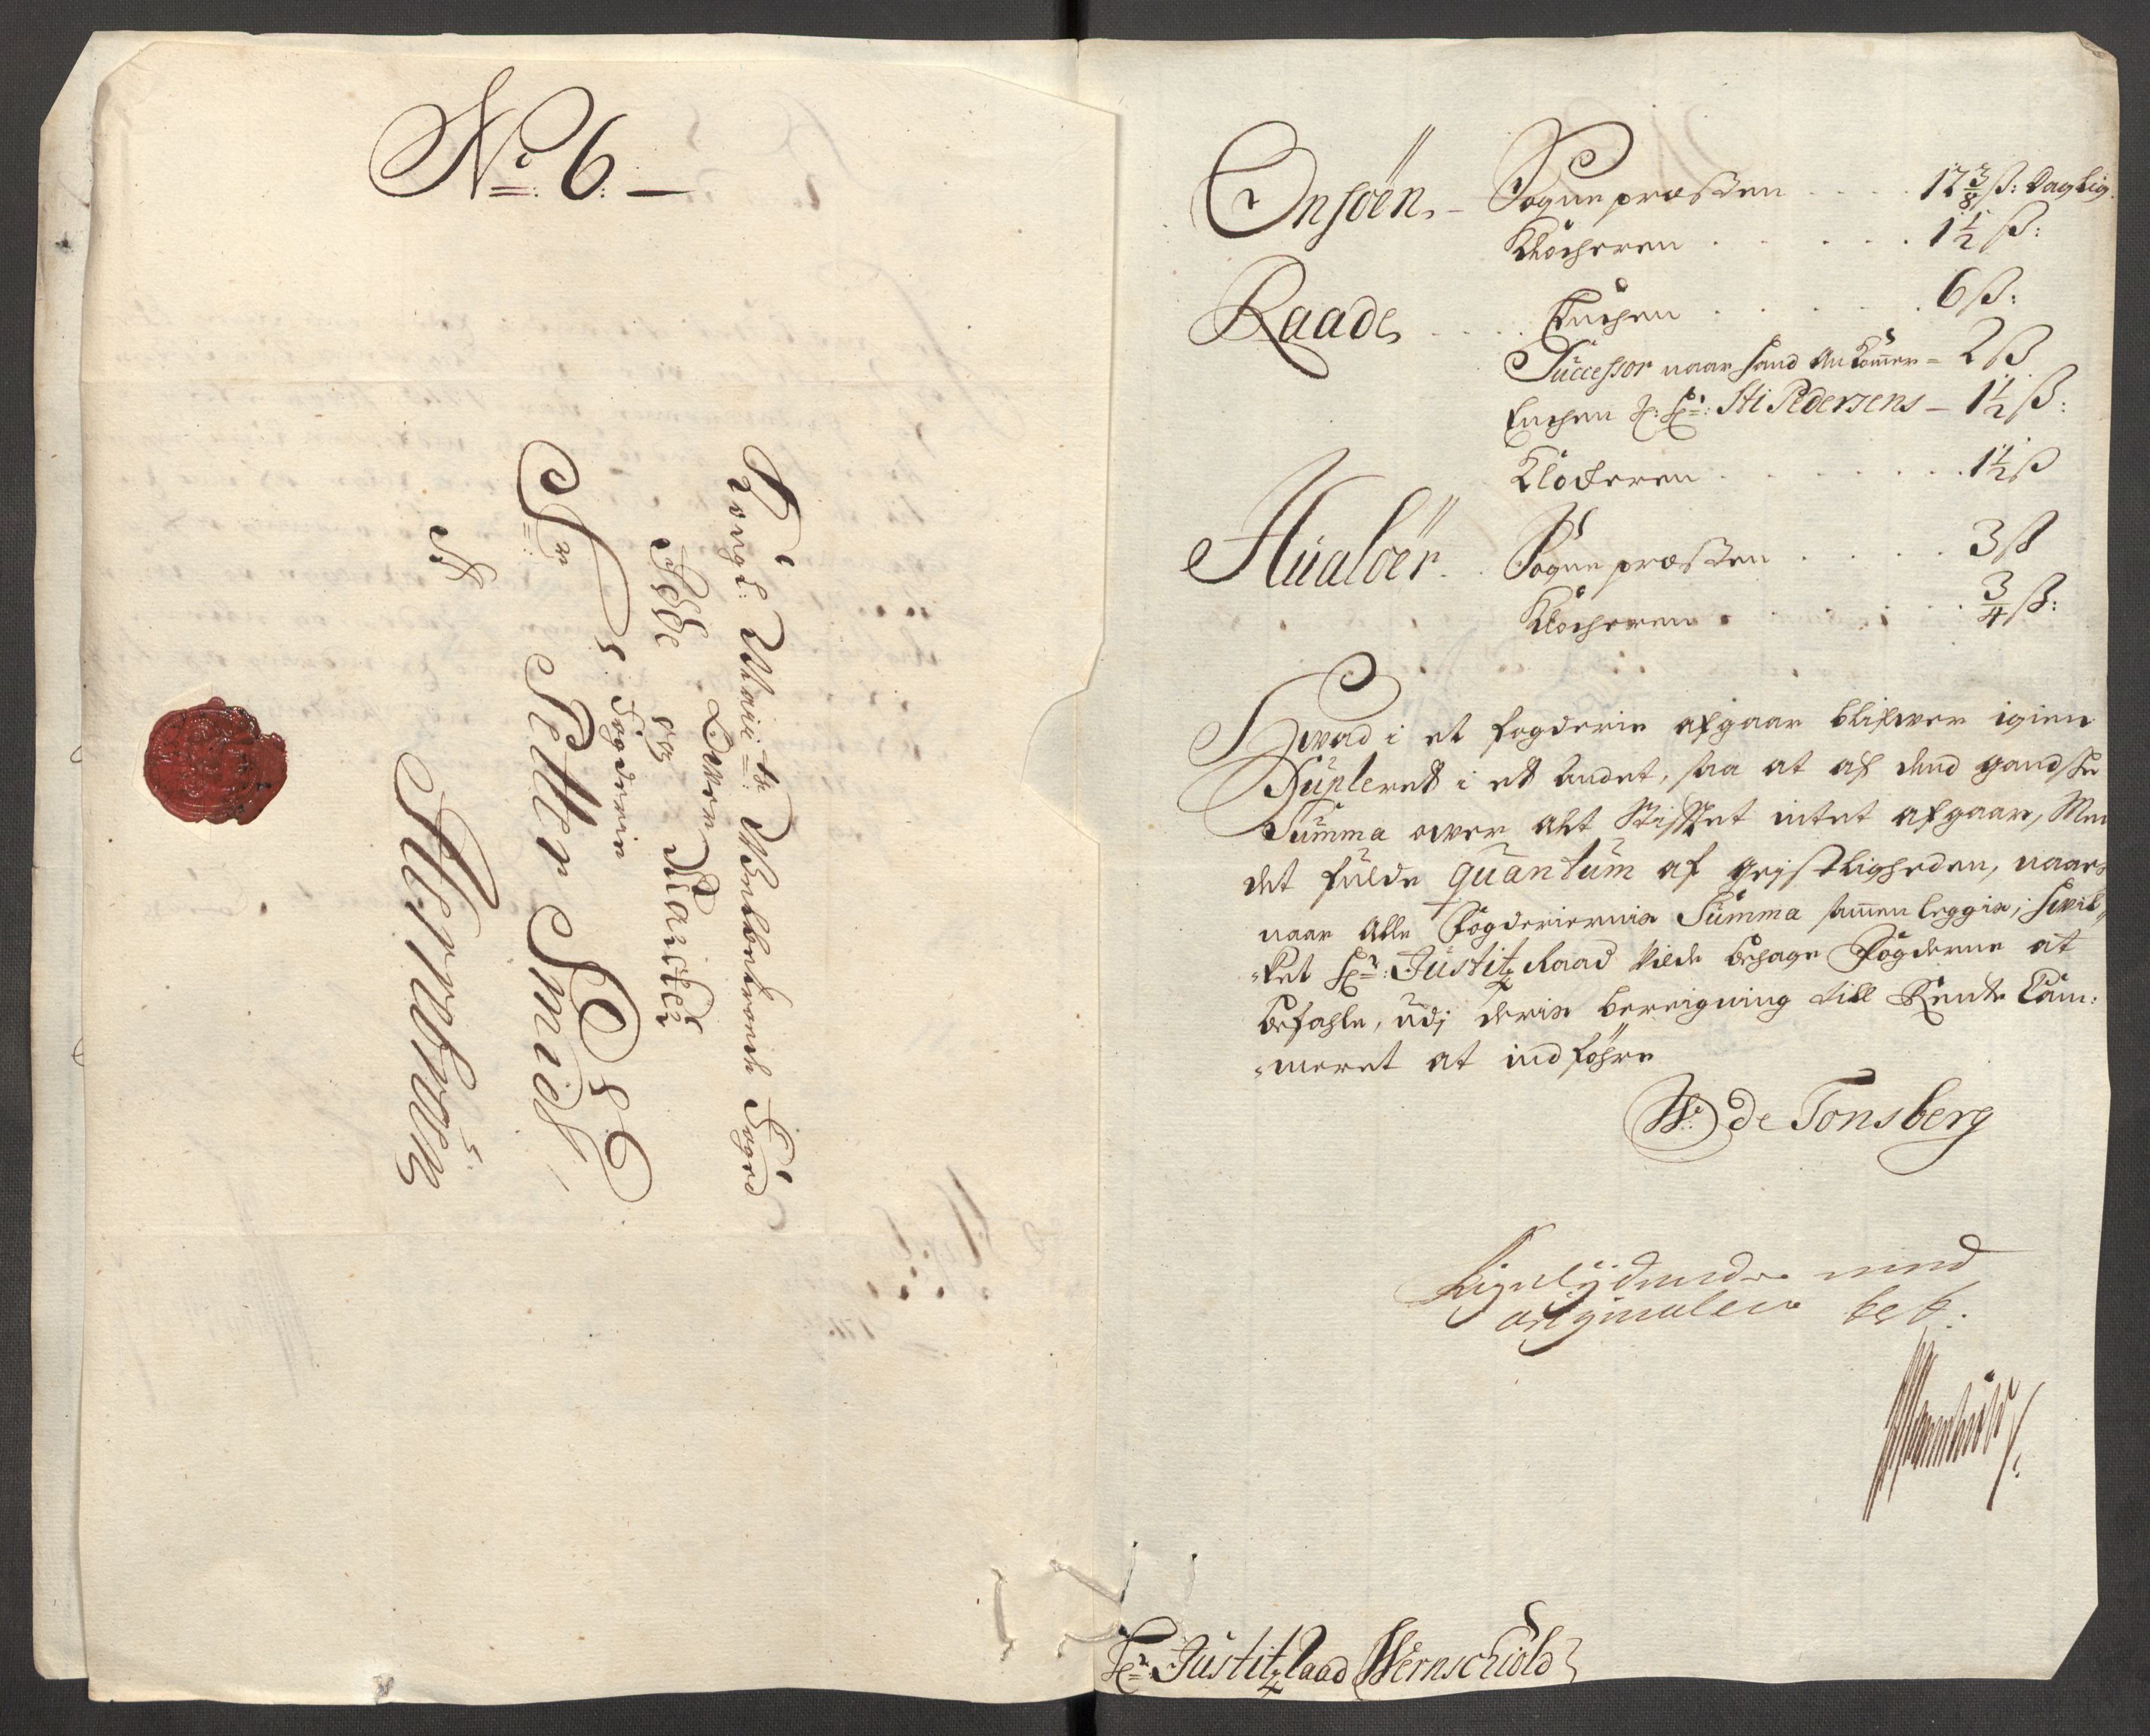 No: 6. —
Kongl: Maii:ts Welbetroede Foged
Ofwer
Jdde og Marcker
s. Fogderie
Sr Petter Smidt
A
Herrebrøen
Onsøen. — Sognepræsten . . . . 12 3/8 ß: Daglig
Klocheren . . . . . 1 1/2 ß:
Raade . . . . Enchen . . . . . 6 ß:
Successor naar hand Ankommer = 2 ß
Enchen Hr: Sti Pedersens — 1 1/2 ß:
Klockeren . . . . . . 1 1/2 ß
Hualöer . . Sognepræsten . . . . 3 ß
Klocheren . . . . . 3/4 ß:
Hwad i et fogderie afgaar blifwer igien
Supleret i et Andet, saa at af dend gandske
Summa ower alt Stifftet intet afgaar, Men
det fulde quantum af geistligheden, naar
naar Alle Fogderiernis Summa sammen leggis, hwil-
-ket Hr: Justitz Raad vilde behage Fogderne at
befahle, udj deris bereigning till Rente Cam:
-meret at indføhre
W: de Tonsberg
Ligelydende med
originalen test:
Hr: Justitz Raad Wernschiold